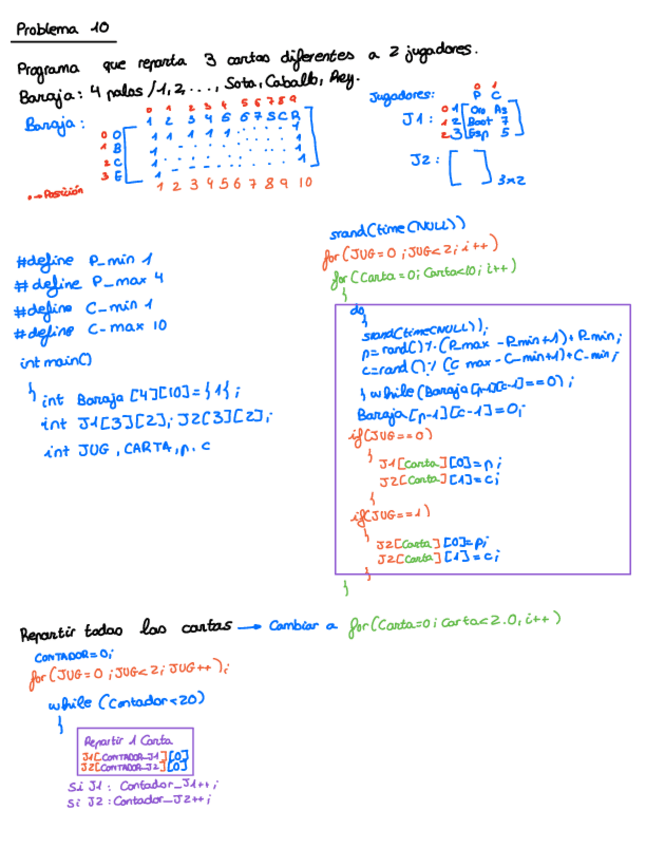 Problema 10
Programa que reparta 3 cartas diferentes a 2 jugadores.
Baraja: 4 palos /1, 2, ..., Sota, Caballo, Rey.
Baraja:
0 1 2 3 4 5 6 7 8 9
1 2 3 4 5 6 7 S C R
0 O 1 1 1 1 1 . . . . 1
1 B 1 . . . . . 1
2 C 1 . . . . . 1
3 E 1 . . . . . 1
•→Posición
1 2 3 4 5 6 7 8 9 10
Jugadores:
0 1
P C
J1: 0 1 Oro As
1 2 Bast 7
2 3 Esp 5
J2: [ ] 3x2
#define P_min 1
#define P_max 4
#define C_min 1
#define C_max 10
int main()
{
int Baraja [4][10]={1};
int J1[3][2], J2[3][2];
int JUG, CARTA, p, c
srand(time(NULL))
for(JUG=0; JUG<2; i++)
for(Carta=0; Carta<10; i++)
{
do
{
srand(time(NULL));
p=rand()%(P_max -P_min+1)+P_min;
c=rand()%(C_max -C_min+1)+C_min;
} while(Baraja[p-1][c-1]==0);
Baraja[p-1][c-1]=0;
if(JUG==0)
{
J1[Carta][0]=p;
J2[Carta][1]=c;
}
if(JUG==1)
{
J2[Carta][0]=p;
J2[Carta][1]=c;
}
}
Repartir todas las cartas → Cambiar a for(Carta=0; Carta<20, i++)
CONTADOR=0;
for(JUG=0; JUG<2; JUG++);
while (Contador<20)
{
Repartir 1 Carta
J1[CONTADOR_J1][0]
J2[CONTADOR_J2][0]
Si J1: Contador_J1++;
Si J2: Contador_J2++;